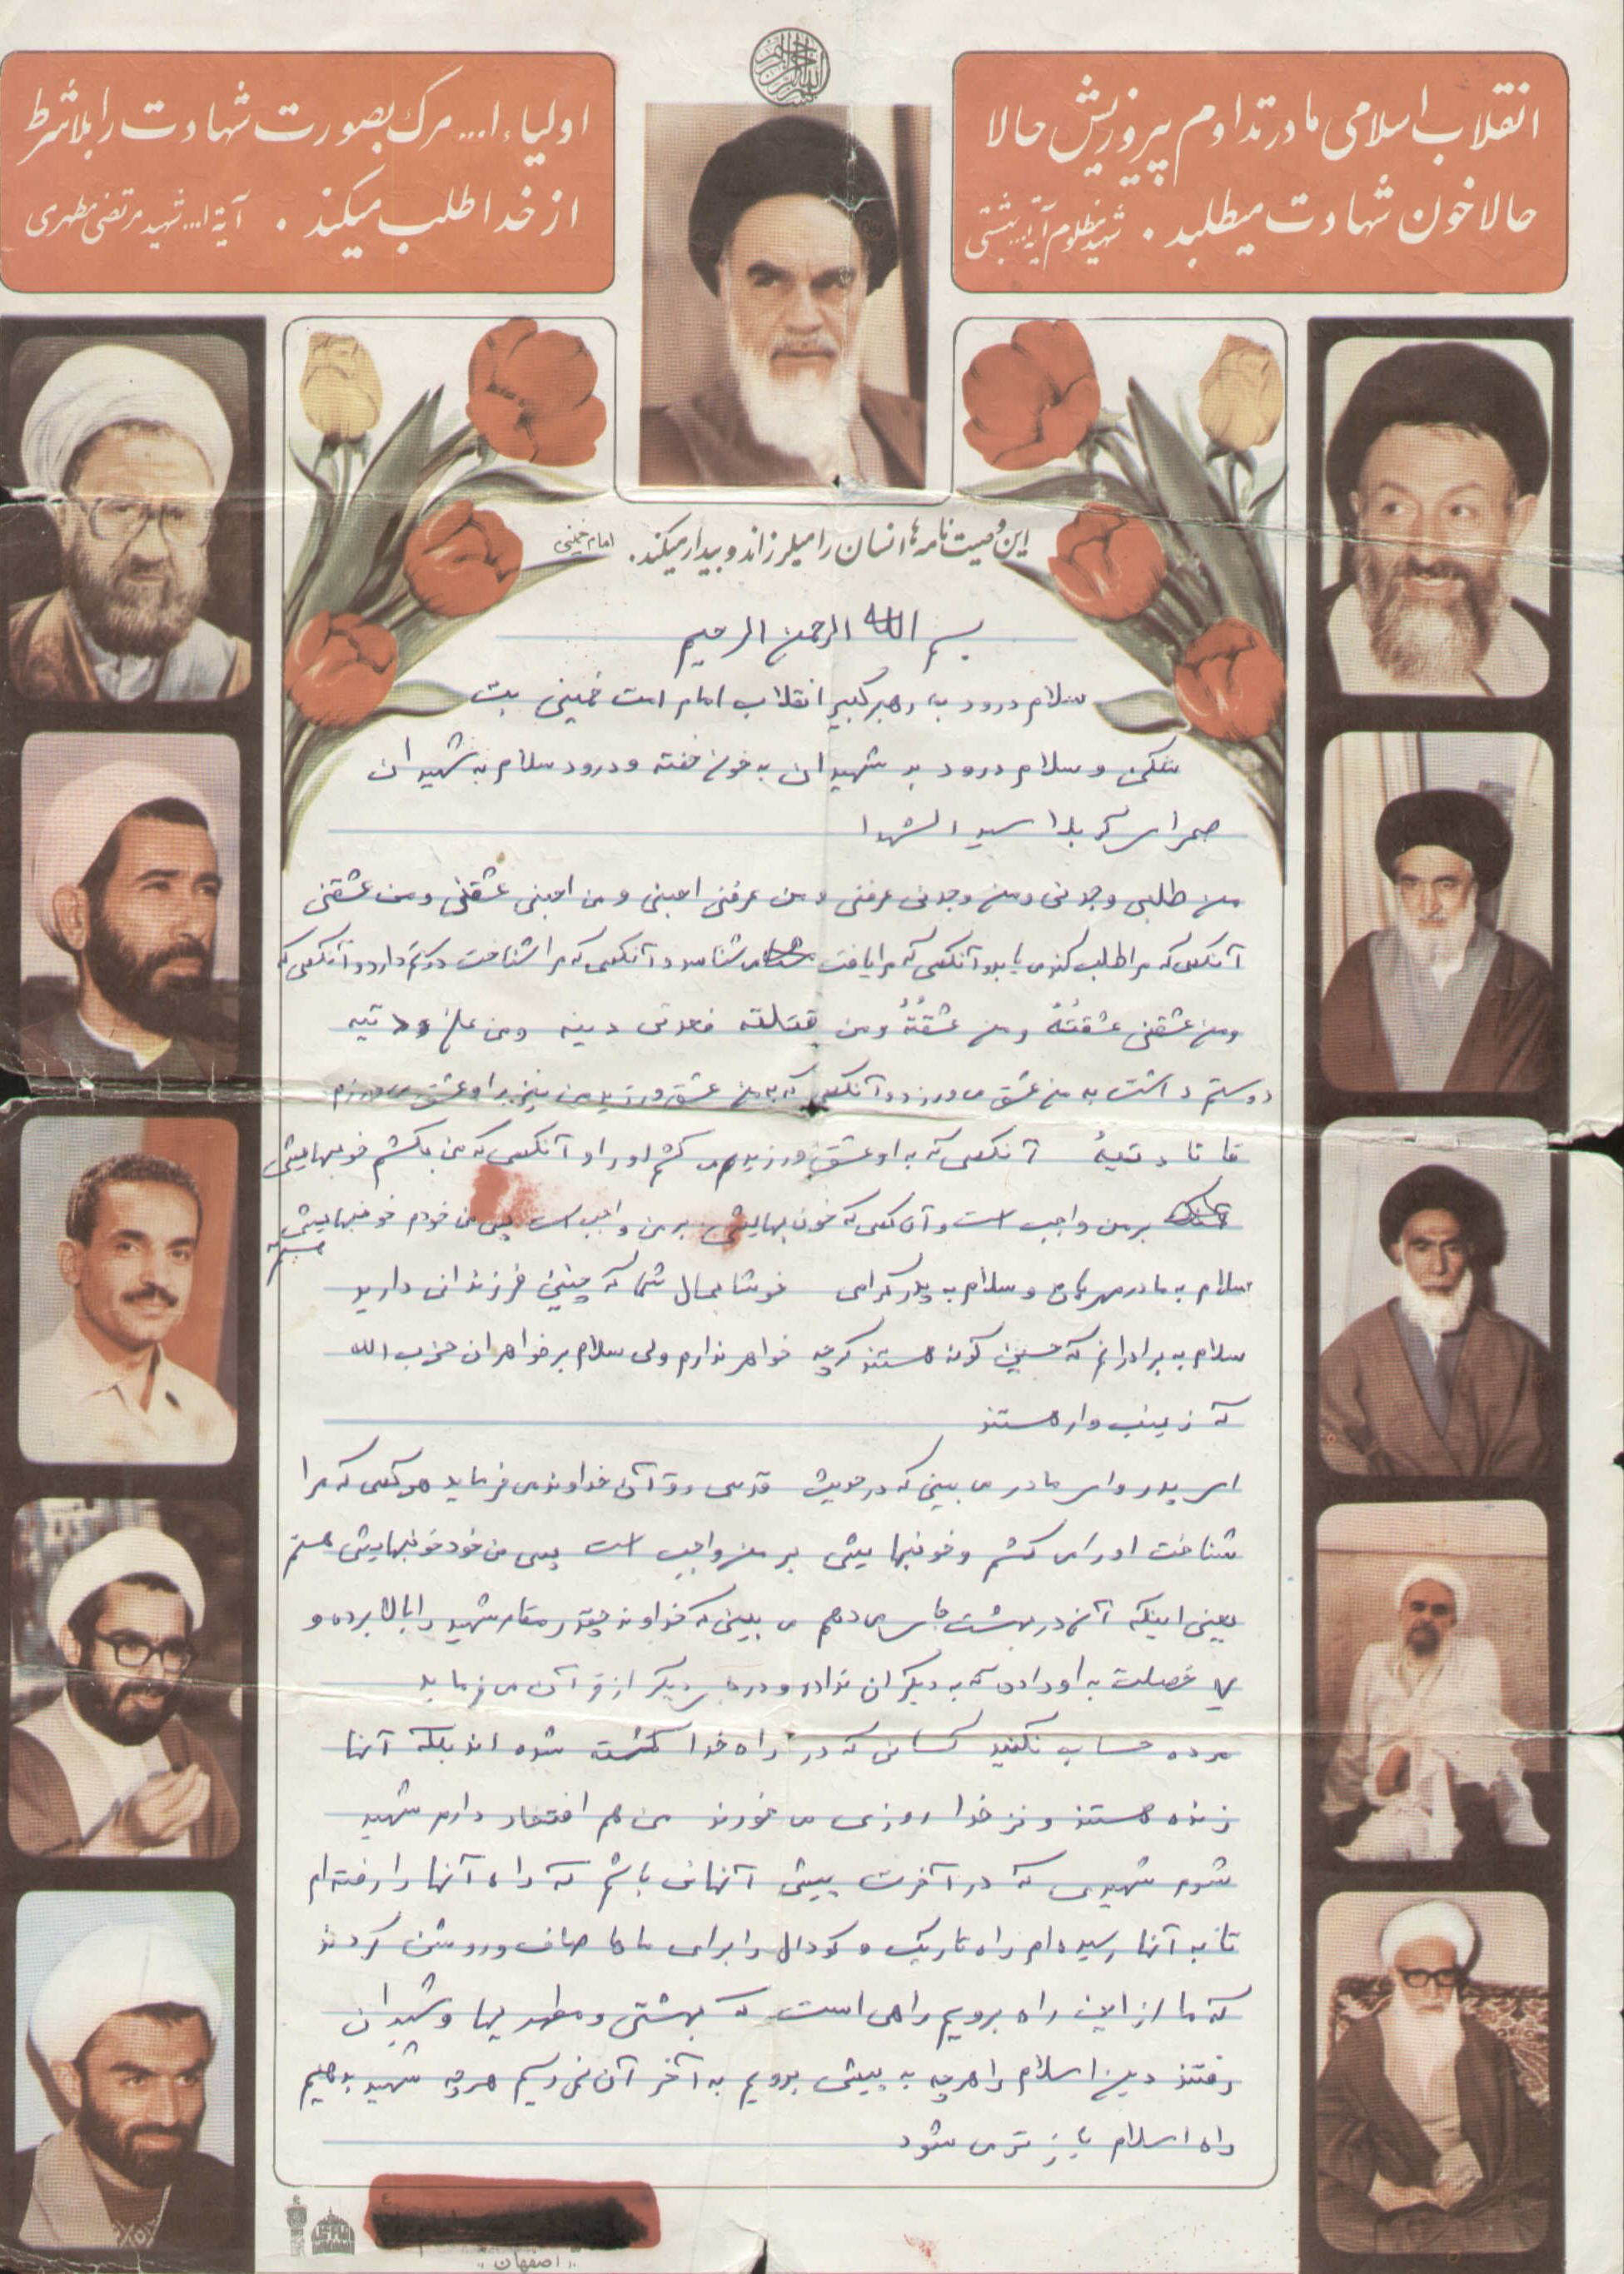 انقلاب اسلامی ما در تداوم پیروزیش حالا
حالا خون شهادت میطلبد. شهید مظلوم آیة... بهشتی
اولیاء ا... مرگ بصورت شهادت را بلاشرط
از خدا طلب میکند. آیة ا... شهید مرتضی مطهری
این وصیت نامه ها انسان را میلرزاند و بیدار میکند. امام خمینی
بسم الله الرحمن الرحیم
سلام درود به رهبر کبیر انقلاب امام امت خمینی بت
شکن و سلام درود بر شهیدان به خون خفته و درود سلام به شهیدان
صحرای کربلا سید الشهدا
من طلبنی وجدنی و من وجدنی عرفنی و من عرفنی احبنی و من احبنی عشقنی و من عشقنی
آنکس که مرا طلب کند می یابد و آنکس که مرا یافت می شناسد و آنکس که مرا شناخت دوستم دارد و آنکس که
و من عشقنی عشقتُهُ و من عشقتُهُ و من قتلته فعلی دینه و من علی دتیه
دوستم داشت به من عشق می ورزد و آنکس که به من عشق ورزید من نیز بر او عشق می ورزم
فانا دتیهُ آنکس که به او عشق ورزیدم می کشم او را و آنکس که من بکشم خونبهایش
بر من واجب است و آن کس که خون بهایش بر من واجب است پس من خودم خونبهایش
هستم
سلام به مادر مهربان و سلام به پدر گرامی خوشا بحال شما که چنین فرزندانی دارید
سلام به برادرانم که حسین گونه هستند گرچه خواهر ندارم ولی سلام بر خواهران حزب الله
که زینب وار هستند
ای پدر و ای مادر می بینی که در حدیث قدسی و قرآن خداوند می فرماید هر کس که مرا
شناخت او را می کشم و خونبهایش بر من واجب است پس من خود خونبهایش هستم
یعنی اینکه آن در بهشت جای می دهم می بینی که خداوند چقدر مقام شهید را بالا برده و
خصلت به او داده که به دیگران نداده و در جای دیگر از قرآن می فرماید
مرده حساب نکنید کسانی که در راه خدا کشته شده اند بلکه آنها
زنده هستند و نزد خدا روزی می خورند من هم افتخار دارم شهید
شوم شهیدی که در آخرت پیش آنهائی باشم که راه آنها را رفته ام
تا به آنها رسیده ام راه تاریک و گودال را برای ماها صاف و روشن کردند
که ما از این راه برویم راهی است که بهشتی و مطهریها و شهیدان
رفتند دین اسلام را هرچه به پیش برویم به آخر آن نمی رسیم هرچه شهید بدهیم
راه اسلام بازتر می شود
"اصفهان"